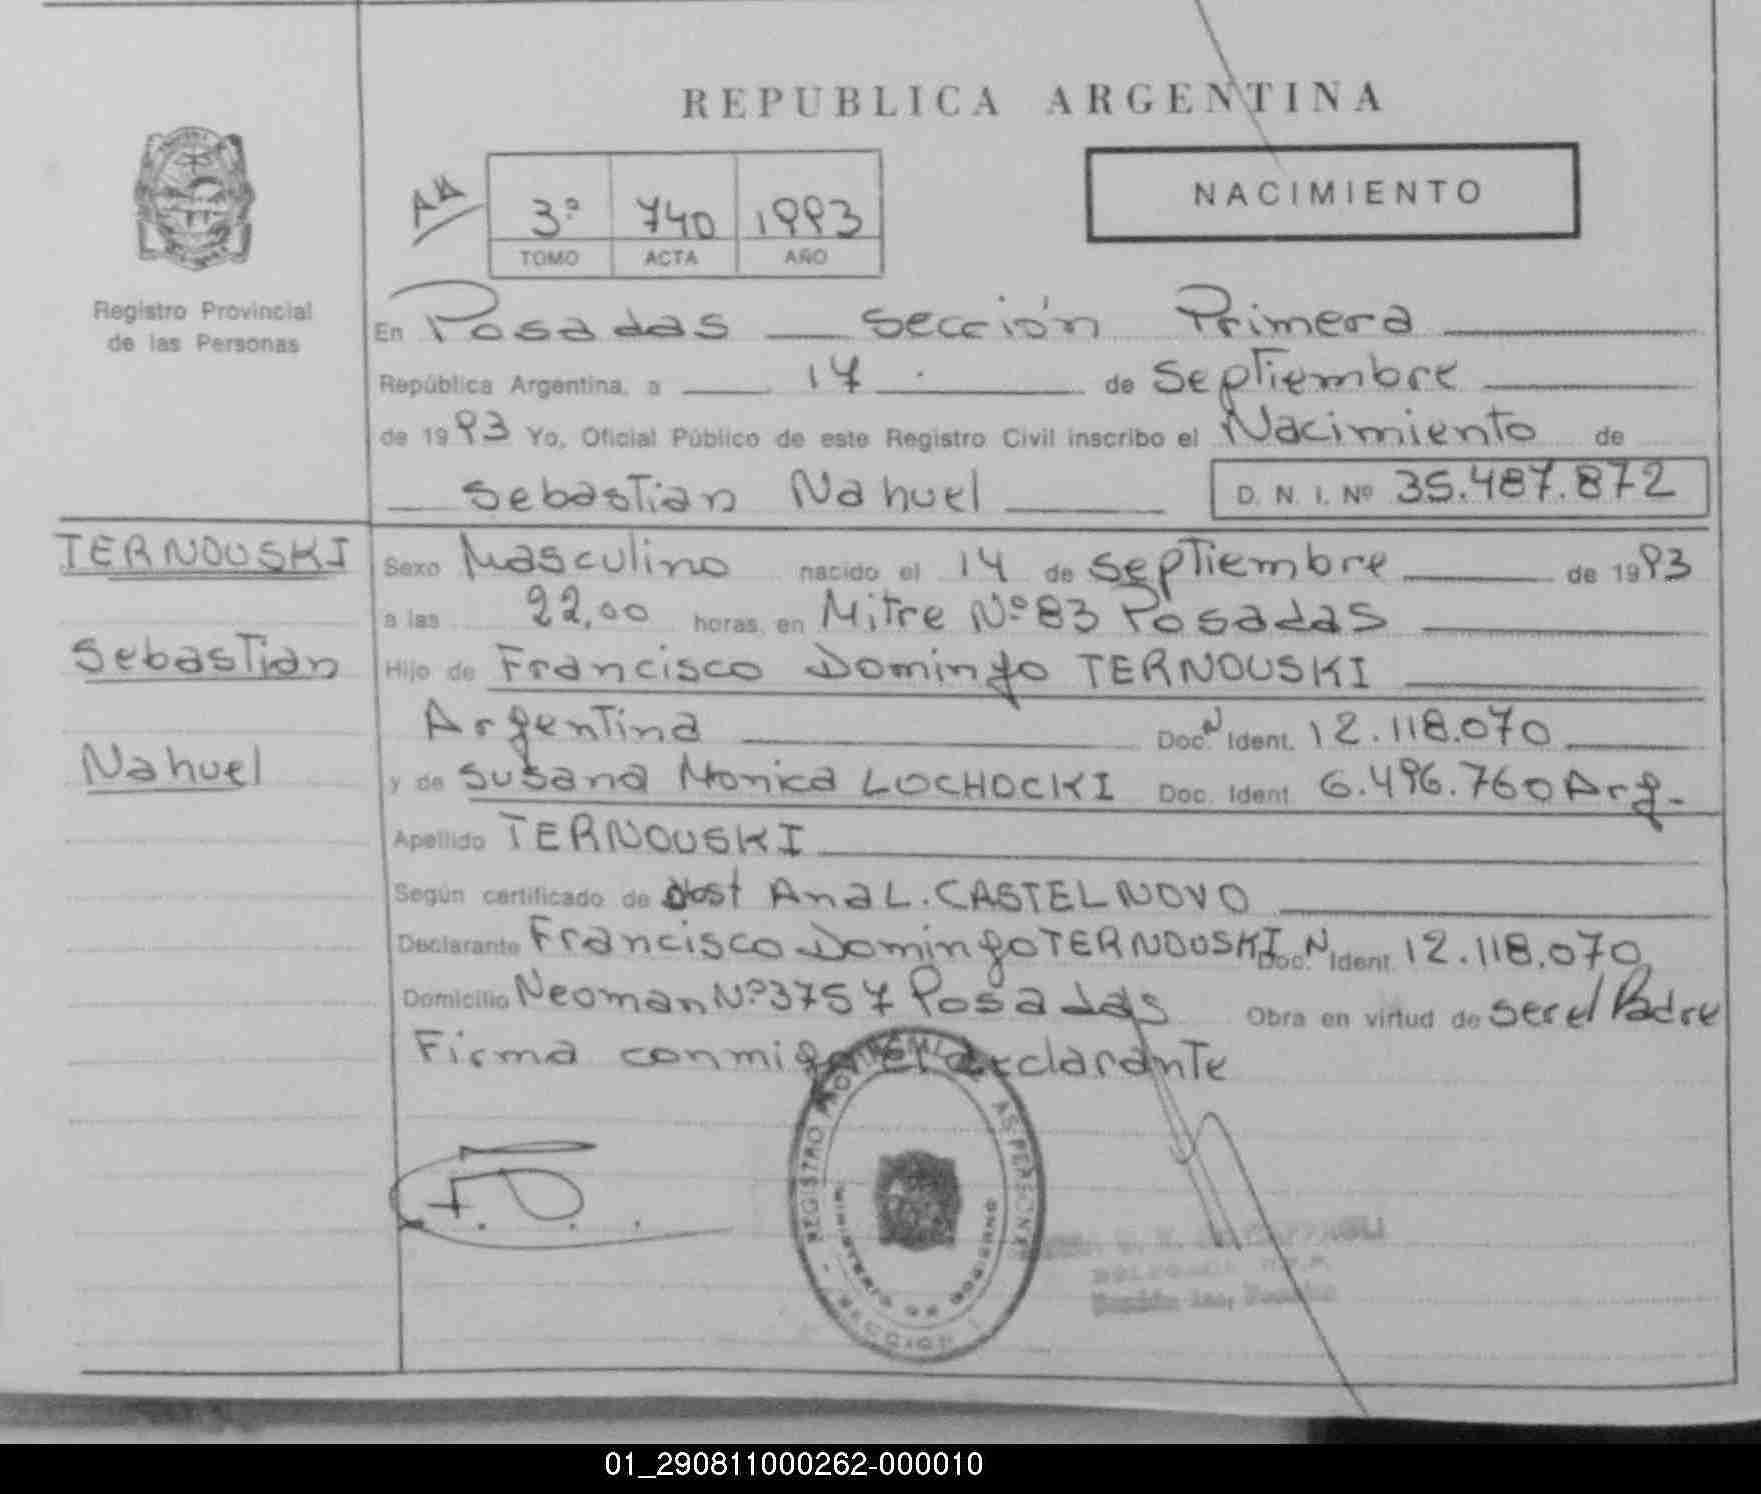 REPUBLICA ARGENTINA
NACIMIENTO
3º 740 1993
TOMO ACTA AÑO
Registro Provincial
de las Personas
En Posadas sección Primera
República Argentina, a 14 de septiembre
de 1993 Yo, Oficial Público de este Registro Civil inscribo el Nacimiento de
sebastian Nahuel D. N. I. Nº 35.487.872
TERNOUSKI
Sebastian
Nahuel
Sexo Masculino nacido el 14 de septiembre de 1993
a las 22,00 horas, en Mitre Nº 83 Posadas
Hijo de Francisco Domingo TERNOUSKI
Argentina Doc. N Ident. 12.118.070
y de susana Monica LOCHOCKI Doc. Ident. 6.496.760 Arg.
Apellido TERNOUSKI
Según certificado de Obst Ana L. CASTELNOVO
Declarante Francisco Domingo TERNOUSKI Doc. N Ident. 12.118.070
Domicilio Neoman Nº 3757 Posadas Obra en virtud de ser el Padre
Firma conmigo el declarante
REGISTRO PROVINCIAL DE LAS PERSONAS
MINISTERIO DE GOBIERNO
SECCION 1
01_290811000262-000010